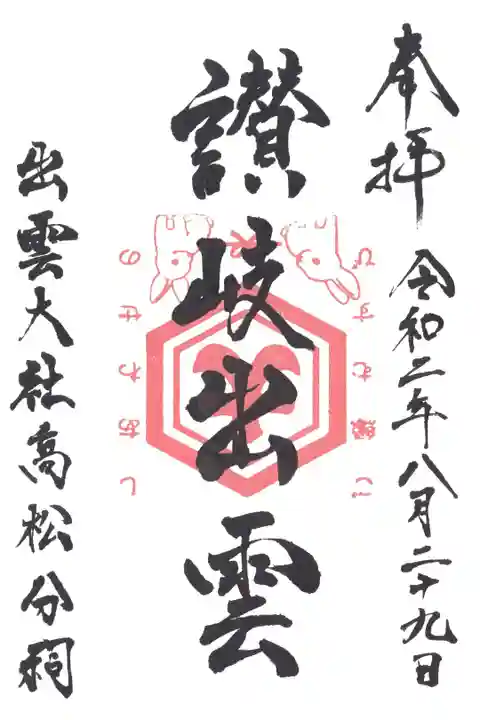 奉拝
令和二年八月二十九日
讃岐出雲
出雲大社高松分祠
しあわせの
ご縁むすび